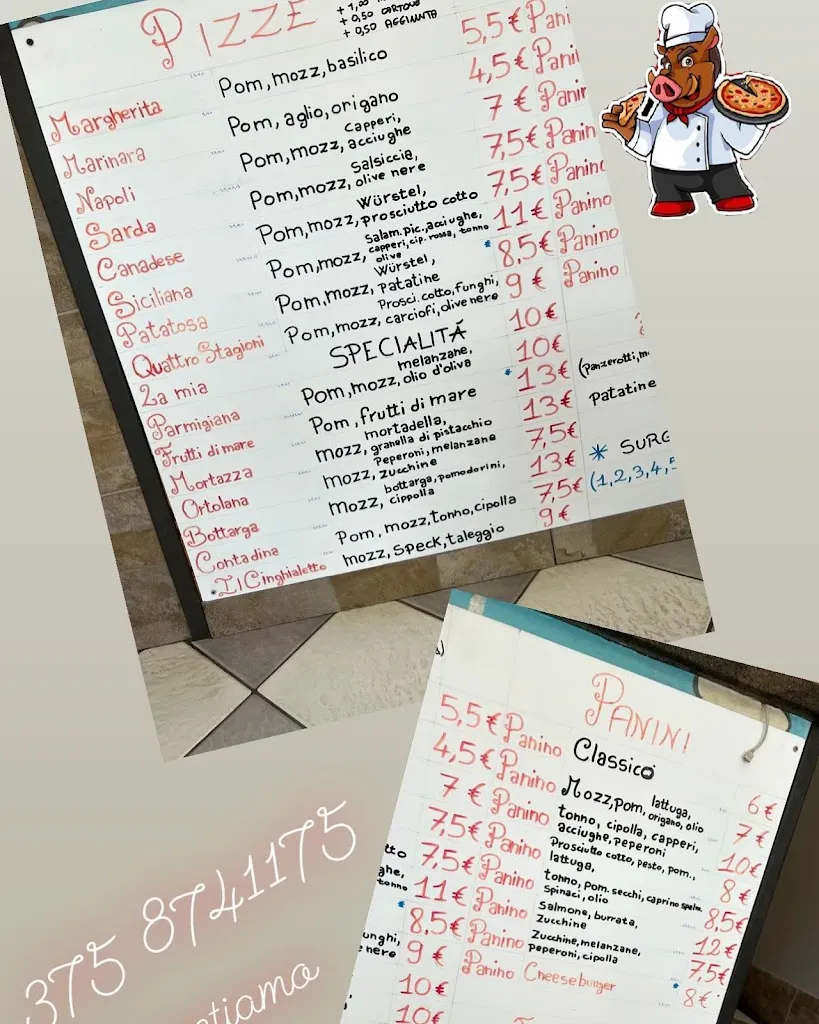 PIZZE
+ 1,00
+ 0,50 CARTONE
+ 0,50 AGGIUNTA
Margherita Pom, mozz, basilico 5,5€ Pani
Marinara Pom, aglio, origano 4,5€ Pani
Napoli Pom, mozz, capperi, acciughe 7€ Panin
Sarda Pom, mozz, Salsiccia, olive nere 7,5€ Panin
Canadese Pom, mozz, Würstel, prosciutto cotto 7,5€ Panino
Siciliana Pom, mozz, Salam. pic., acciughe, capperi, cip. rossa, tonno olive 11€ Panino
Patatosa Pom, mozz, Würstel, patatine * 8,5€ Panino
Quattro Stagioni Pom, mozz, Prosci. cotto, funghi, carciofi, olive nere 9€ Panino
La mia SPECIALITÁ 10€
Parmigiana Pom, mozz, melanzane, olio d'oliva 10€
Frutti di mare Pom, frutti di mare * 13€
Mortazza mozz, mortadella, granella di pistacchio 13€
Ortolana mozz, Peperoni, melanzane zucchine 7,5€
Bottarga mozz, bottarga, pomodorini, cippolla 13€
Contadina Pom, mozz, tonno, cipolla 7,5€
Il Cinghialetto mozz, speck, taleggio 9€
(Panzerotti, m
patatine
* SURG
(1,2,3,4,5
PANINI
5,5€ Panino Classico 6€
4,5€ Panino Mozz, pom, lattuga, origano, olio 7€
7€ Panino tonno, cipolla, capperi, acciughe, peperoni 10€
7,5€ Panino Prosciutto cotto, pesto, pom., lattuga, 8€
tto 7,5€ Panino tonno, pom. secchi, caprino spalm. Spinaci, olio 8,5€
ghe, tonno 11€ Panino Salmone, burrata, zucchine 12€
* 8,5€ Panino Zucchine, melanzane, peperoni, cipolla 7,5€
unghi, e nere 9€ Panino Cheeseburger * 8€
10€
10€
375 8741175